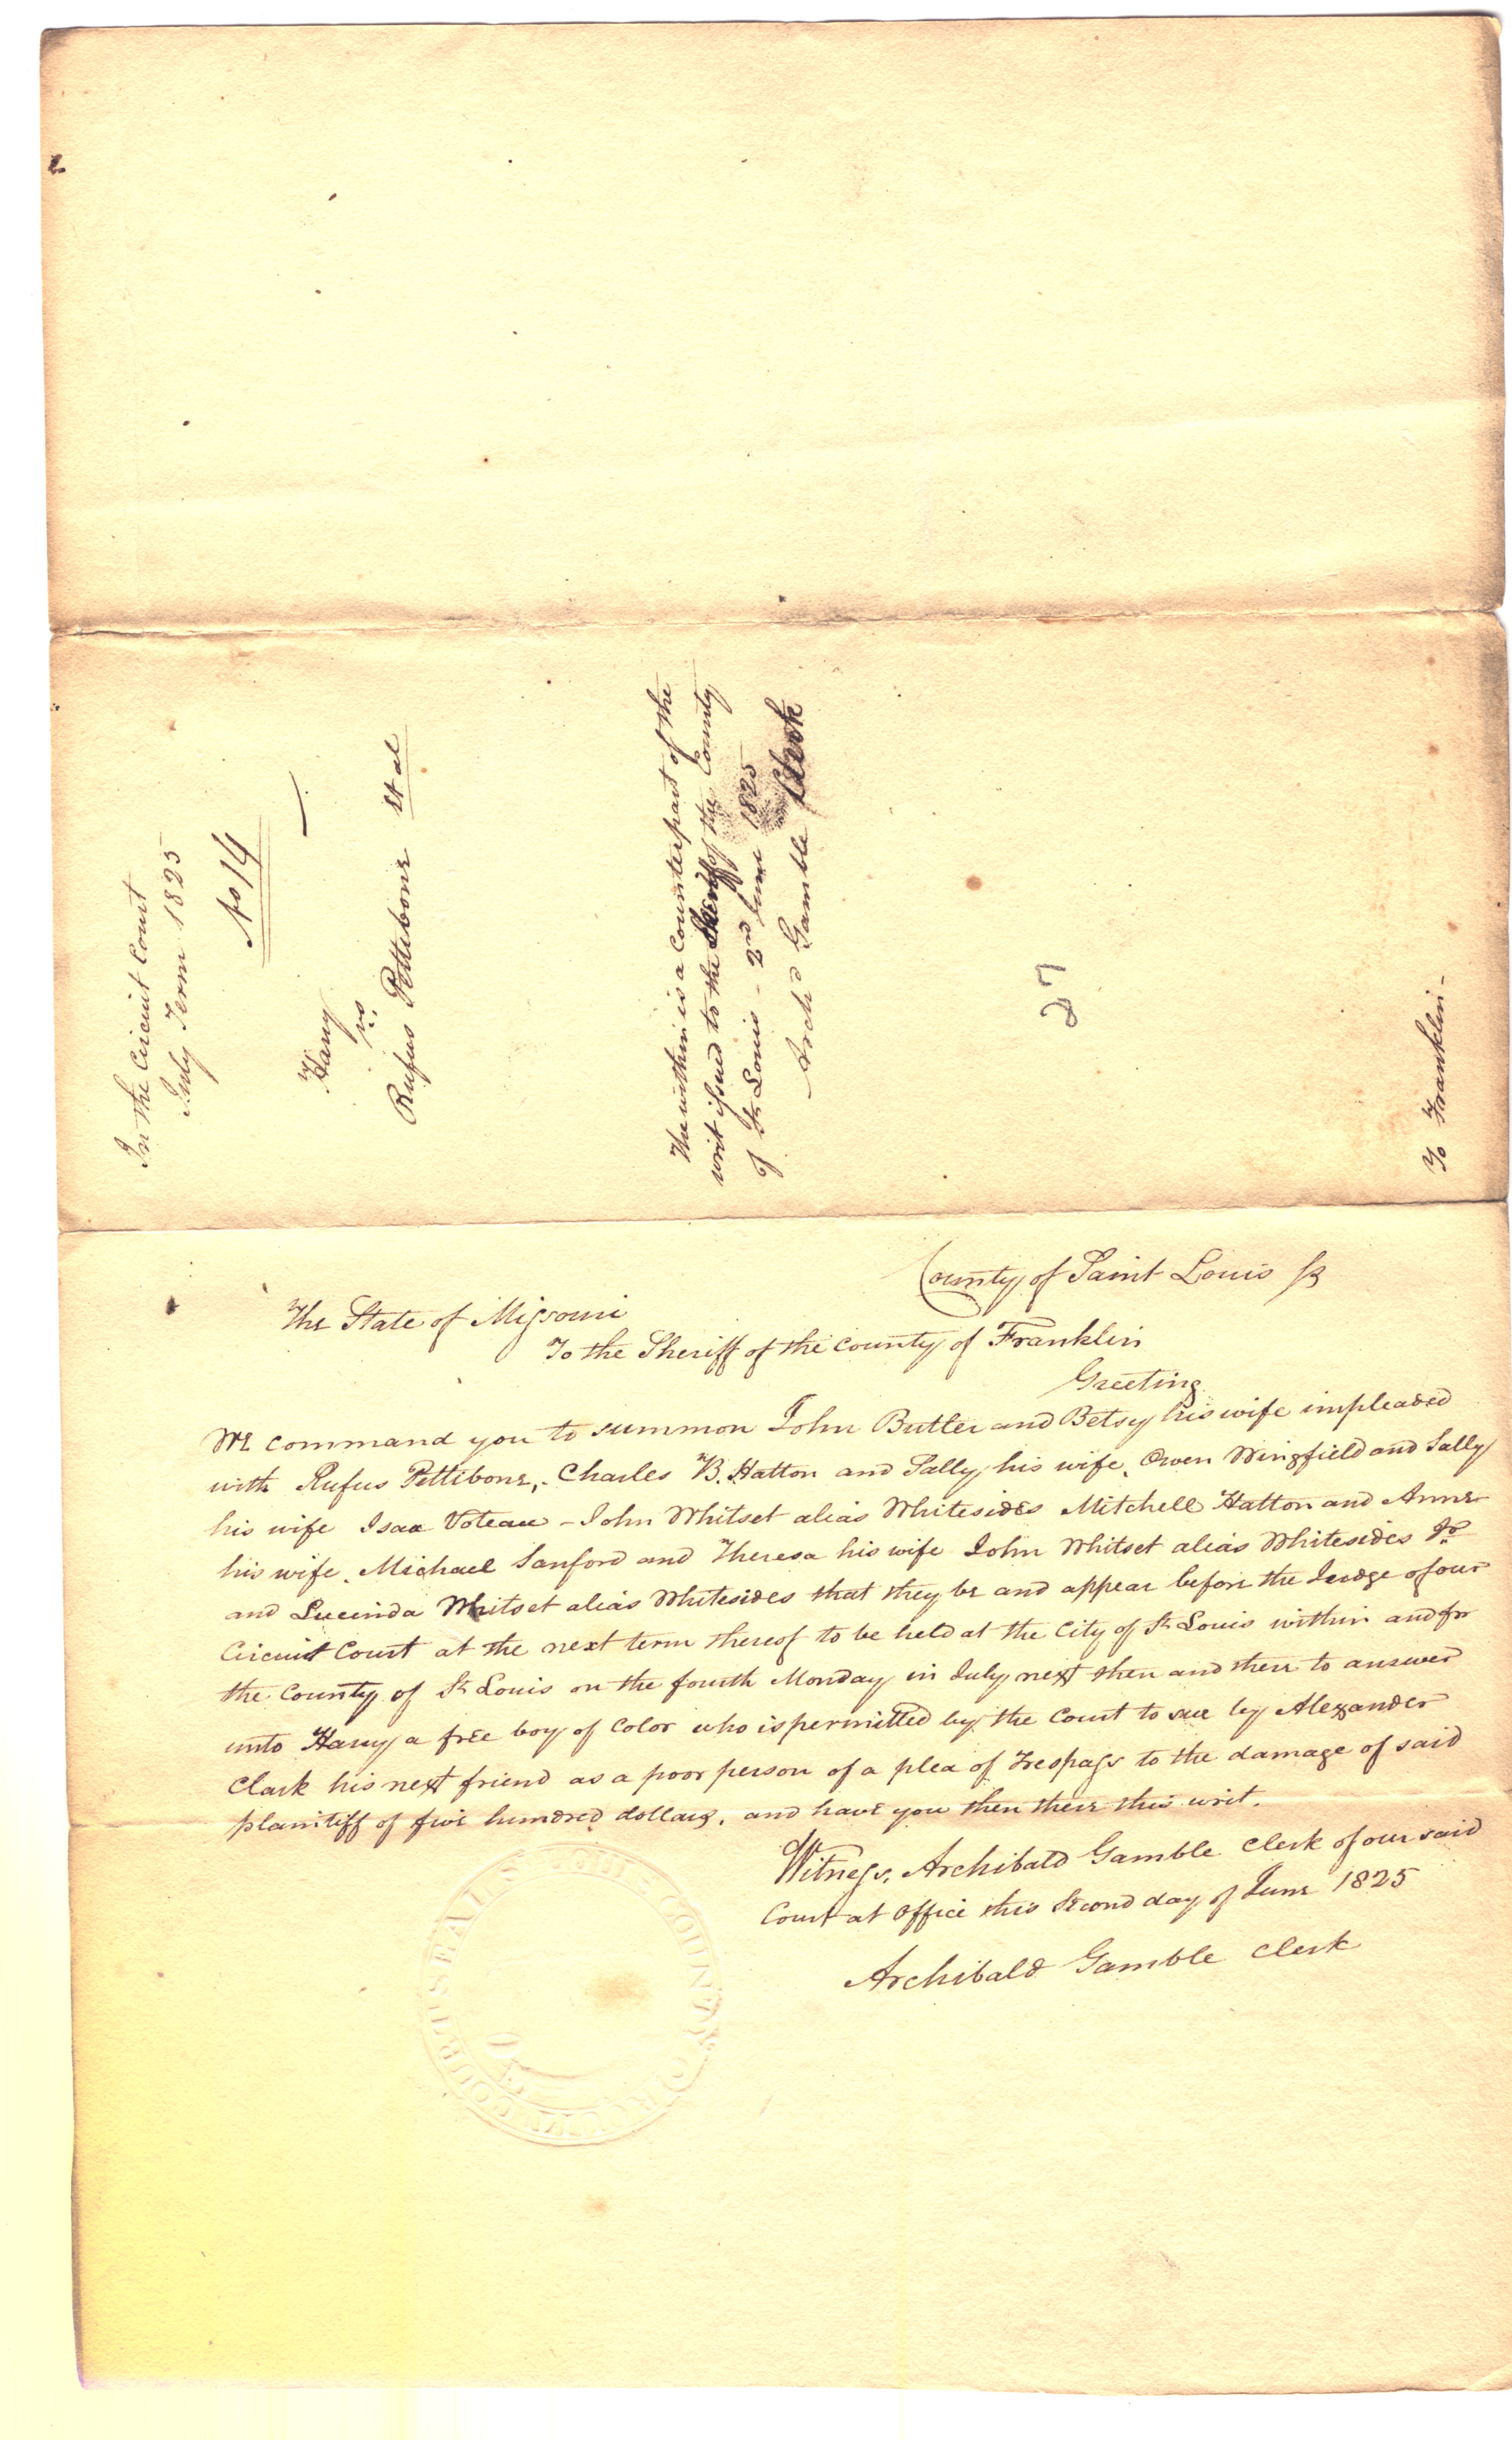 In the Circuit Court
July Term 1825
No 14
Harry
vs.
Rufus Pettibone et al
The within is a counterpart of the
writ issued to the Sheriff of the County
of St Louis - 2nd June 1825
Archd Gamble Clerk
27
To Franklin-
County of Saint Louis ss
The State of Missouri
To the Sheriff of the county of Franklin
Greeting
We command you to summon John Butler and Betsey his wife impleaded
with Rufus Pettibone, Charles B. Hatton and Sally his wife, Owen Wingfield and Sally
his wife Isaa Voteau - John Whitset alias Whitesides Mitchell Hatton and Anne
his wife, Michael Sanford and Theresa his wife John Whitset alias Whitesides Jr
and Lucinda Whitset alias Whitesides that they be and appear before the Judge of our
Circuit Court at the next term thereof to be held at the City of St Louis within and for
the County of St Louis on the fourth Monday in July next then and there to answer
unto Harry a free boy of Color who is permitted by the Court to sue by Alexander
Clark his next friend as a poor person of a plea of Trespass to the damage of said
plaintiff of five hundred dollars, and have you then there this writ.
Witness, Archibald Gamble Clerk of our said
Court at office this Second day of June 1825
Archibald Gamble Clerk